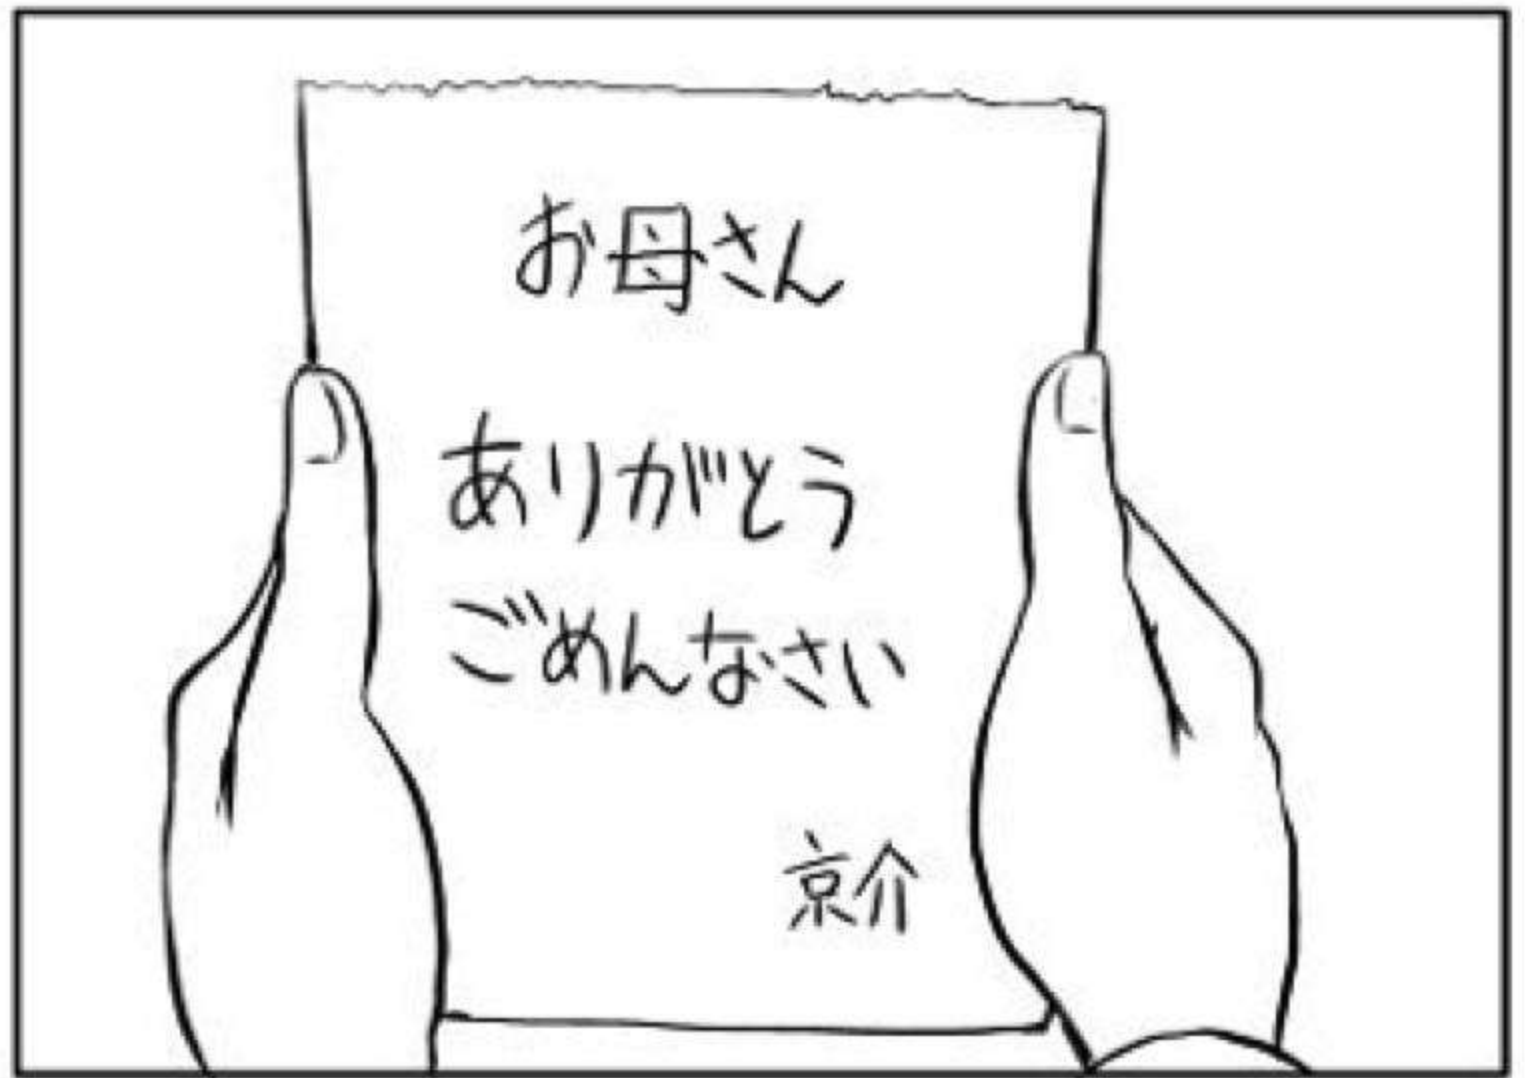 お母さん
ありがとう
ごめんなさい
京介